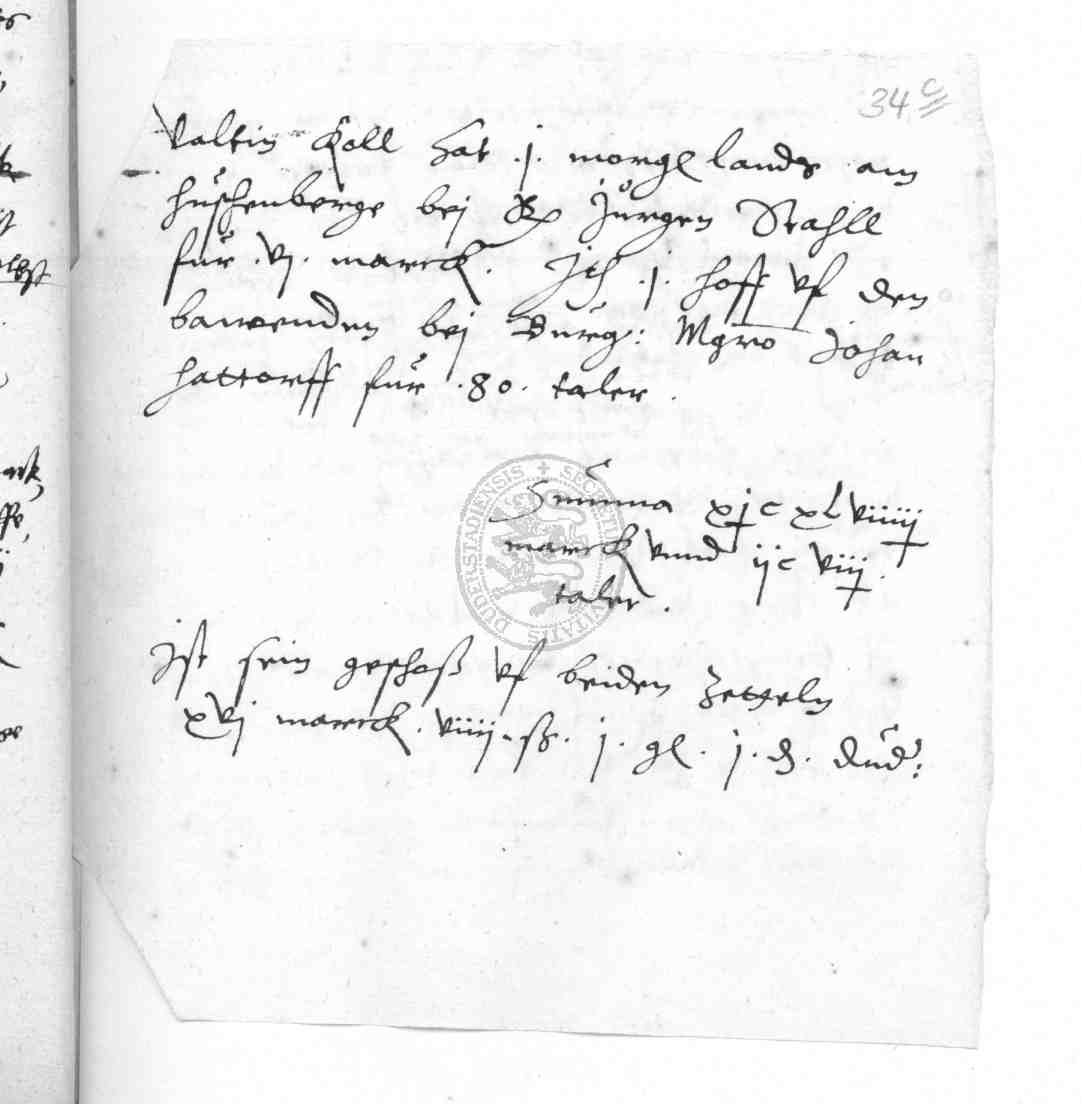 34 c
Valtin Koll hat .j. morgē lands am
huschenberge bej Jurgen Stahll
für .vj. marck. Itē .j. hoff vf den
bawenden bej Burg: Mgro Johan
hattorff für .80. taler.
Summa xjc xLviiiij
marck vnnd ijc viij
taler.
Ist sein geschoß vf beiden Zetteln
xvj marck. viiij. ß. j. gl. j. d. dud:
SECRETUM CIVITATIS DUDERSTADIENSIS